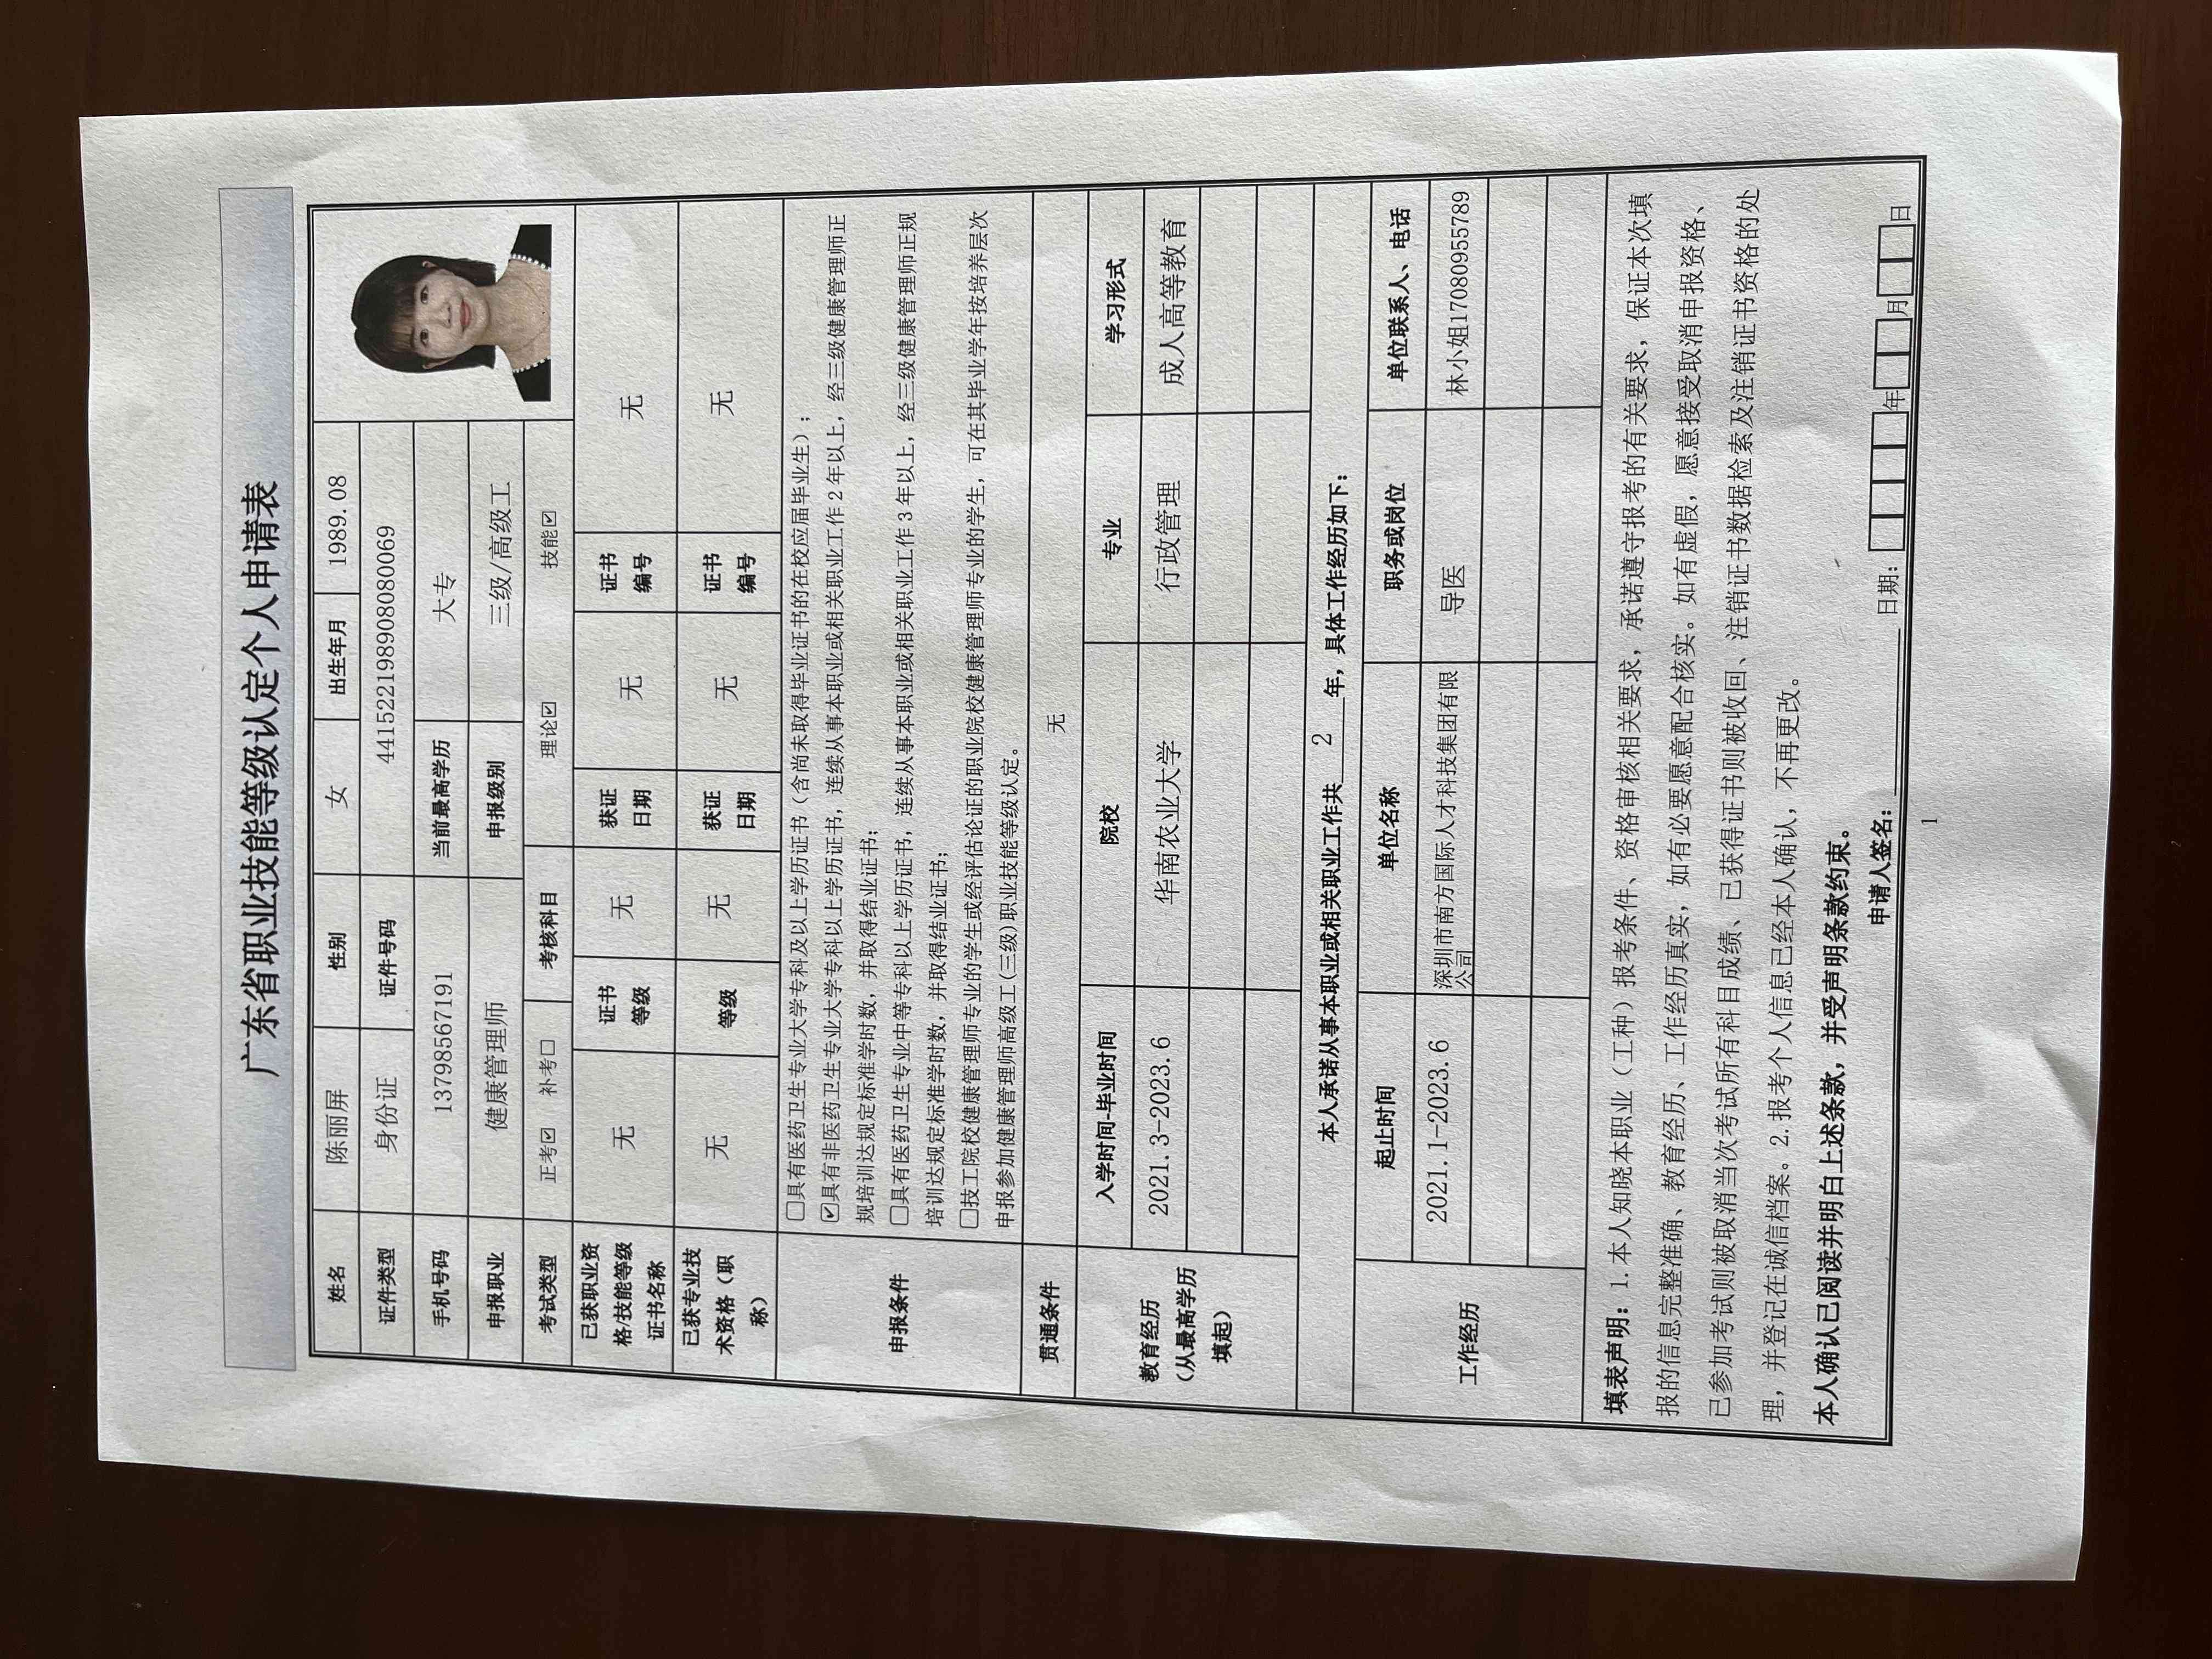 广东省职业技能等级认定个人申请表
姓名 陈丽屏 性别 女 出生年月 1989.08
证件类型 身份证 证件号码 441522198908080069
手机号码 13798567191 当前最高学历 大专
申报职业 健康管理师 申报级别 三级/高级工
考试类型 正考☑ 补考□ 考核科目 理论☑ 技能☑
已获职业资
格/技能等级
证书名称 无 证书
等级 无 获证
日期 无 证书
编号 无
已获专业技
术资格（职
称） 无 等级 无 获证
日期 无 证书
编号 无
申报条件
□具有医药卫生专业大学专科及以上学历证书（含尚未取得毕业证书的在校应届毕业生）；
☑具有非医药卫生专业大学专科以上学历证书，连续从事本职业或相关职业工作2年以上，经三级健康管理师正
规培训达规定标准学时数，并取得结业证书；
□具有医药卫生专业中等专科以上学历证书，连续从事本职业或相关职业工作3年以上，经三级健康管理师正规
培训达规定标准学时数，并取得结业证书；
□技工院校健康管理师专业的学生或经评估论证的职业院校健康管理师专业的学生，可在其毕业学年按培养层次
申报参加健康管理师高级工(三级)职业技能等级认定。
贯通条件 无
教育经历
（从最高学历
填起）
入学时间-毕业时间 院校 专业 学习形式
2021.3-2023.6 华南农业大学 行政管理 成人高等教育
本人承诺从事本职业或相关职业工作共 2 年，具体工作经历如下：
工作经历
起止时间 单位名称 职务或岗位 单位联系人、电话
2021.1-2023.6 深圳市南方国际人才科技集团有限
公司 导医 林小姐17080955789
填表声明：1.本人知晓本职业（工种）报考条件、资格审核相关要求，承诺遵守报考的有关要求，保证本次填
报的信息完整准确、教育经历、工作经历真实，如有必要愿意配合核实。如有虚假，愿意接受取消申报资格、
已参加考试则被取消当次考试所有科目成绩、已获得证书则被收回、注销证书数据检索及注销证书资格的处
理，并登记在诚信档案。2.报考个人信息已经本人确认，不再更改。
本人确认已阅读并明白上述条款，并受声明条款约束。
申请人签名： 日期： 年 月 日
1